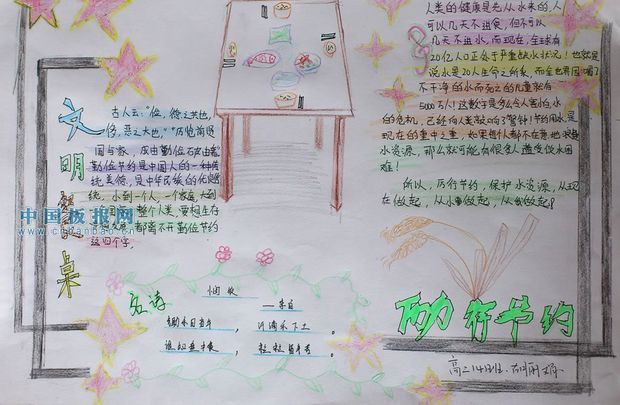 文明餐桌
古人云:"俭,德之共也,
侈,恶之大也,"历览前贤
国与家,成由勤俭破由奢
勤俭节约是中国人的一种传
统美德,是中华民族的优良
传统,小到一个人,一个家庭,大到
整个人类,要想生存
都离不开勤俭节约
这四个字。
中国板报网
www.chinanbao.cn
古诗
悯农
——李白
锄禾日当午,汗滴禾下土。
谁知盘中餐,粒粒皆辛苦。
人类的健康是先从水来的,人
可以几天不进食,但不可以
几天不进水,而现在,全球有
20亿人口正处于严重缺水状况!也就是
说水是20人生命之所系,而全世界因喝了
不干净的水而死之的儿童就有
5000万人!这数字是多么令人害怕,水
的危机,已经向人类敲响了警钟!节约用水是
现在的重中之重,如果每个人都不在意地浪费
水资源,那么就可能有很多人遭受缺水困
难!
所以,厉行节约,保护水资源,从现
在做起,从小事做起,从我做起!
厉行节约
高二14班